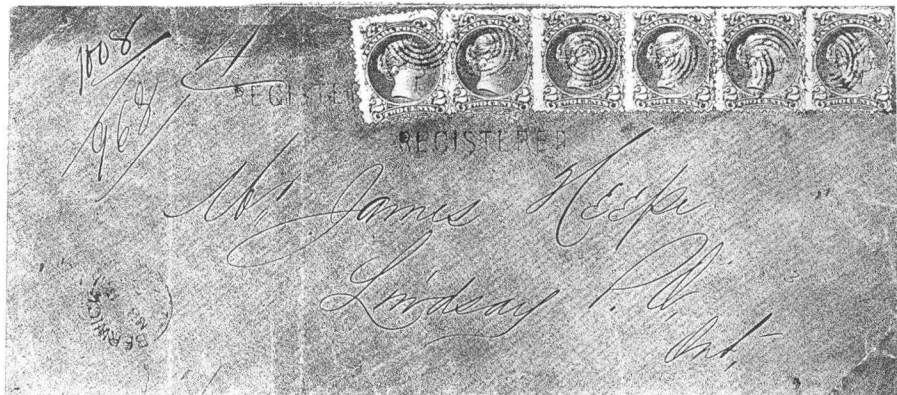 1008/
968/ 4
REGISTERE
REGISTERED
Mr. James
Lindsay P.O.
Ont.
BERWICK